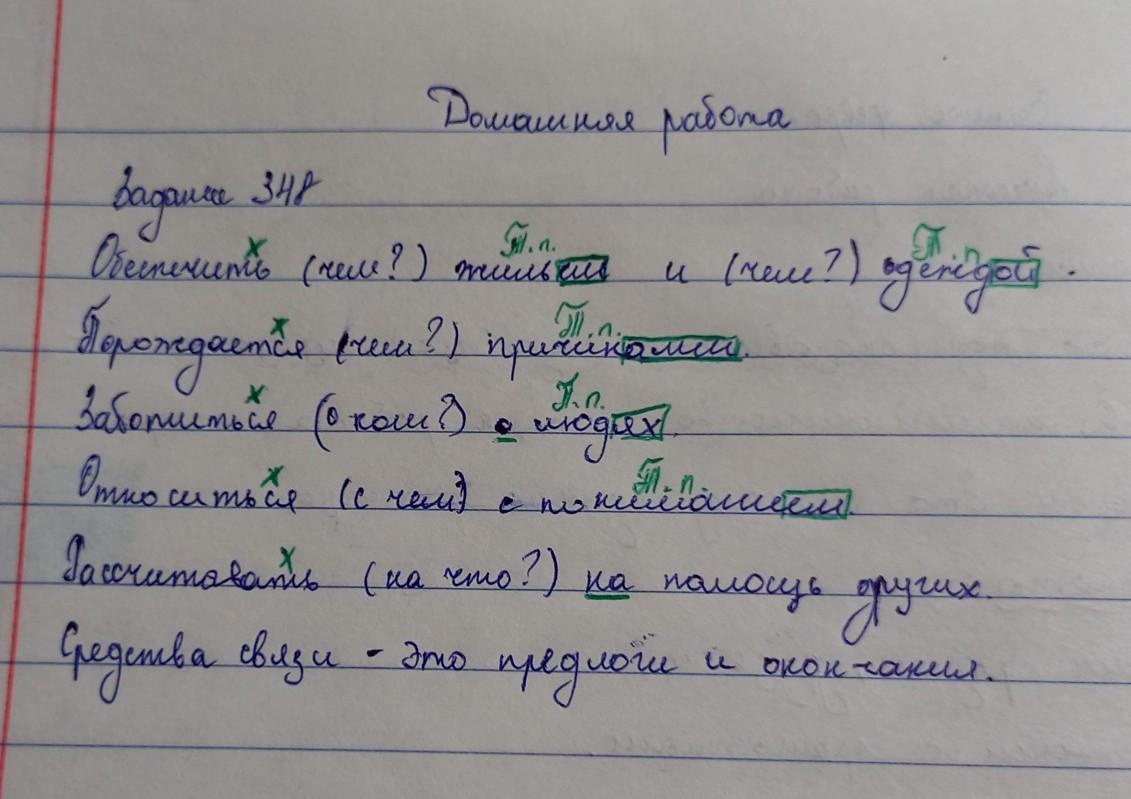 Домашняя работа
Задание 348
х Т.п. Т.п.
Обеспечить (чем?) жильем и (чем?) одеждой.
х Т.п.
Порождается (чем?) причинами.
х П.п.
Заботиться (о ком?) о людях.
х Т.п.
Относиться (с чем?) с пониманием.
х
Рассчитовать (на что?) на помощь других.
Средства связи - это предлоги и окончания.